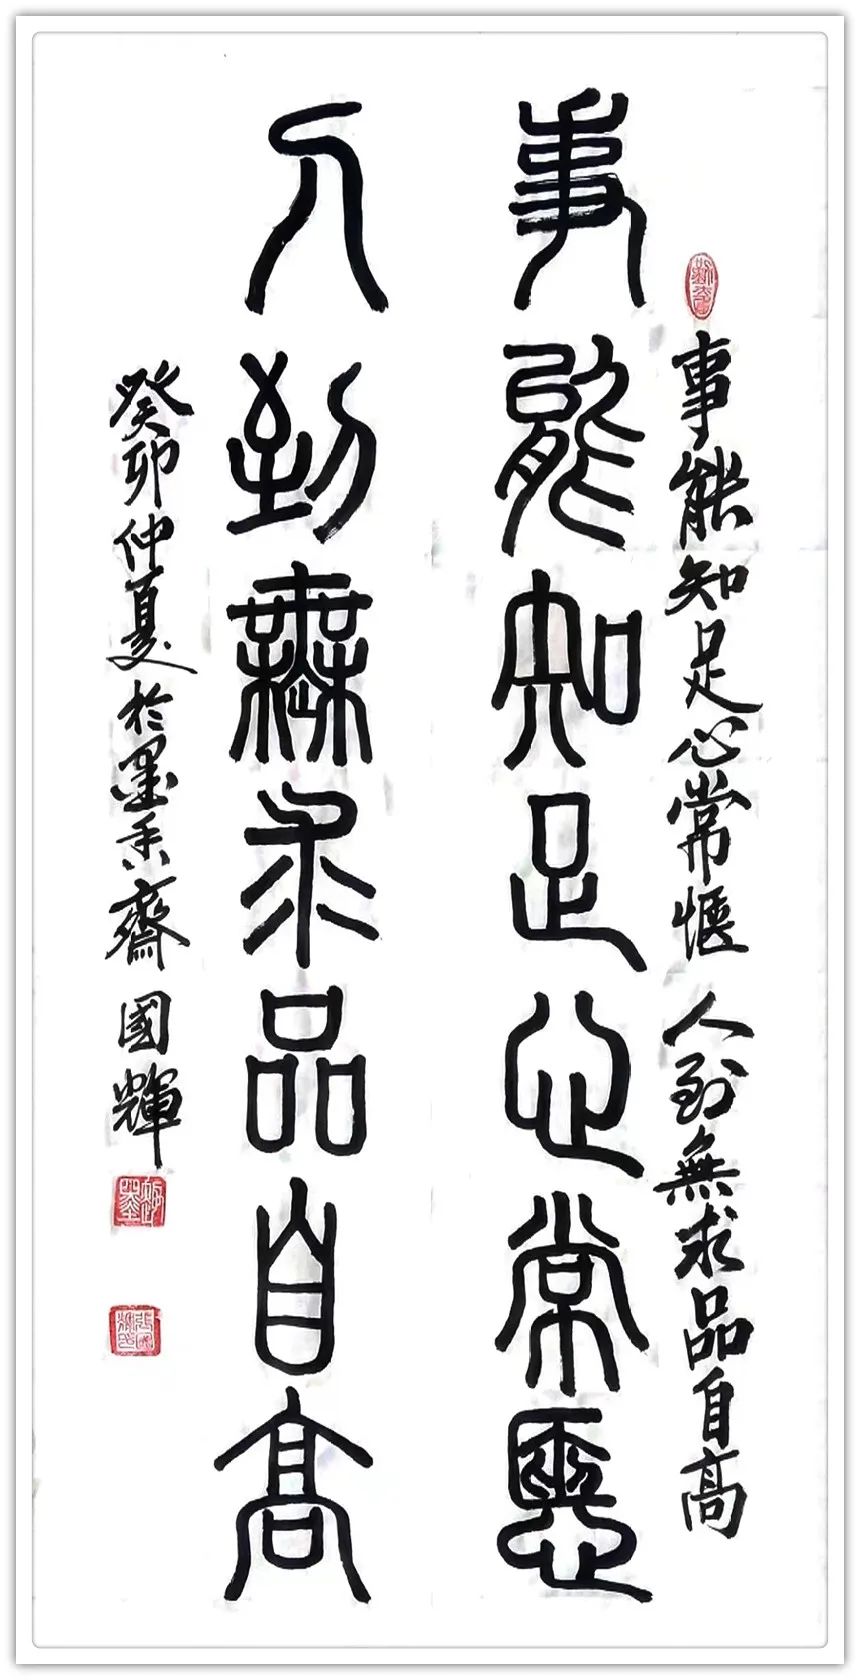 事能知足心常愜 人到無求品自高
事能知足心常愜
人到無求品自高
癸卯仲夏於墨香齋國輝